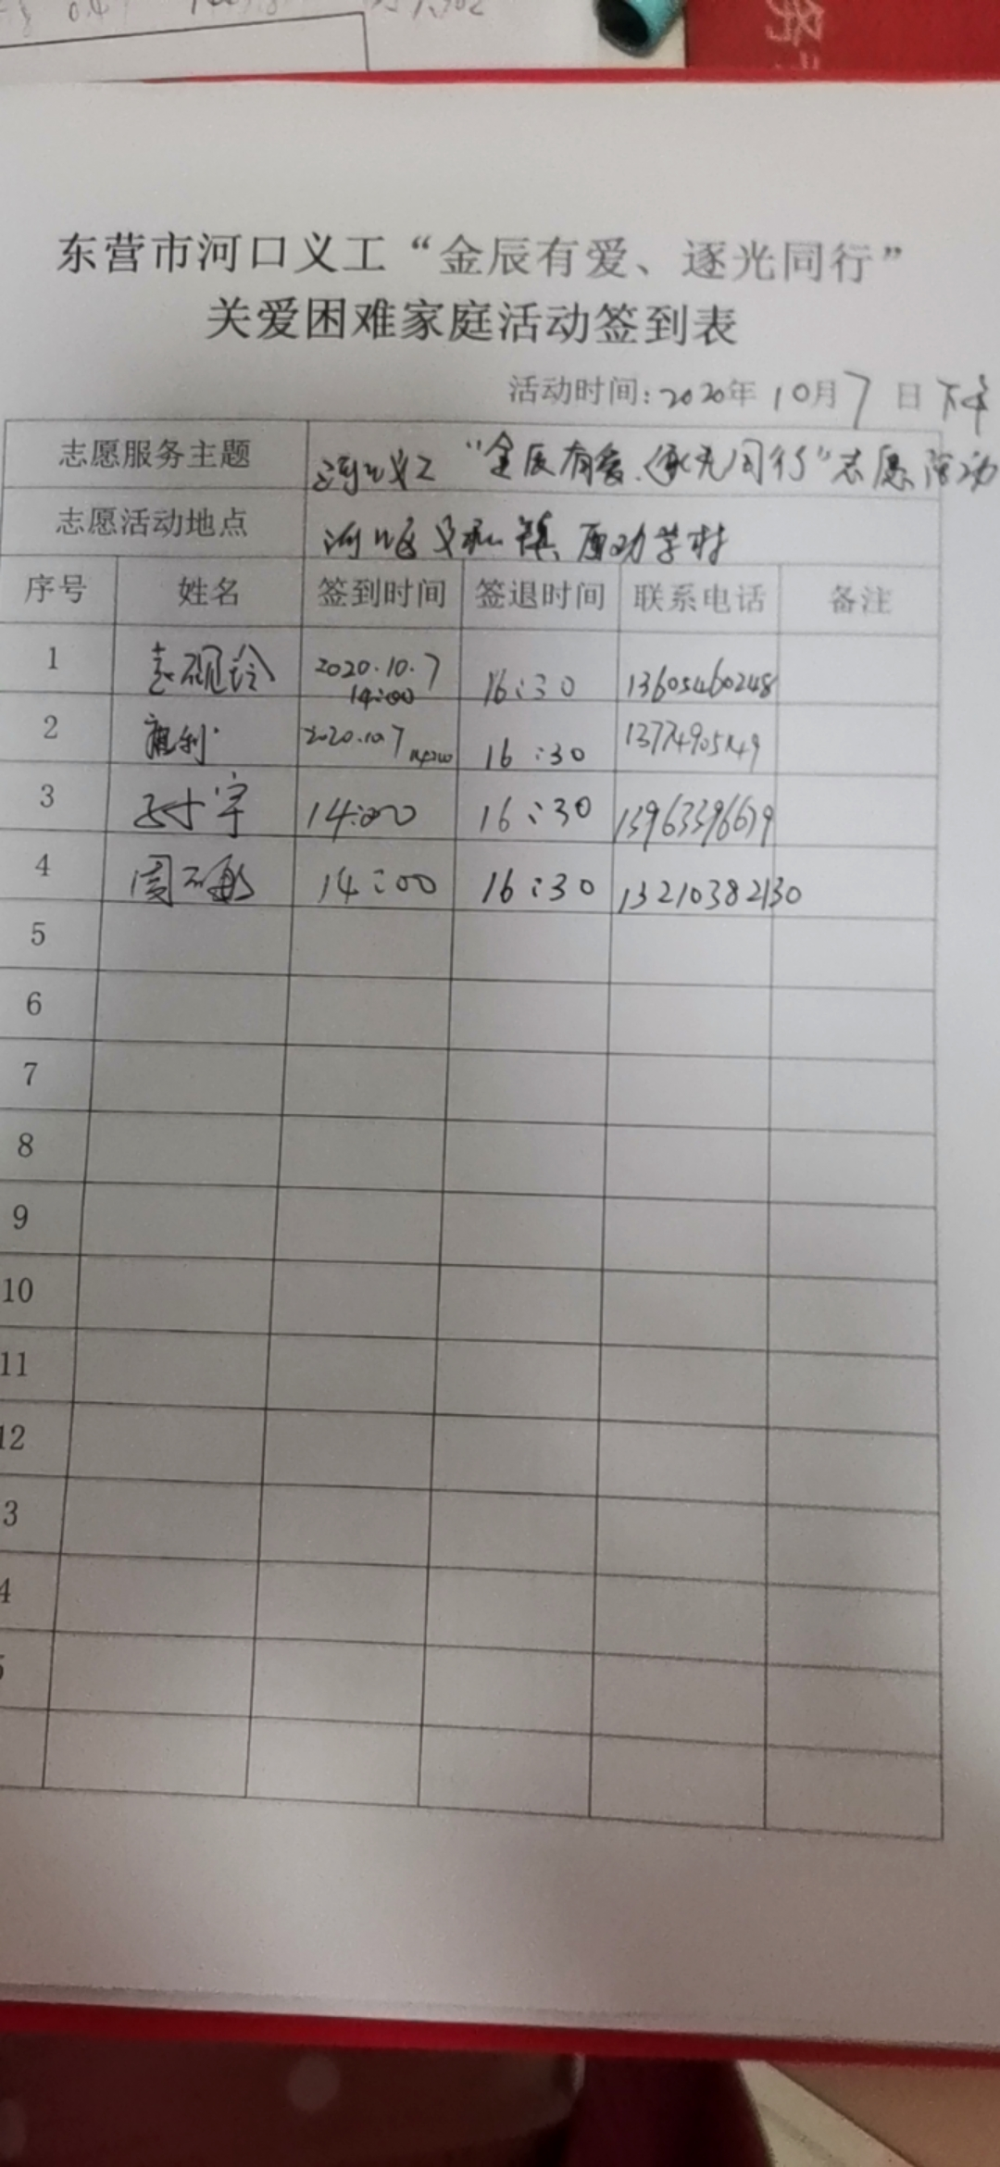 东营市河口义工“金辰有爱、逐光同行”
关爱困难家庭活动签到表
活动时间:2020年10月7日下午
志愿服务主题 河口义工“金辰有爱、逐光同行”志愿活动
志愿活动地点 河口区义和镇
序号 姓名 签到时间 签退时间 联系电话 备注
1 2020.10.7 14:00 16:30 13605460248
2 2020.10.7 14:00 16:30
3 14:00 16:30
4 14:00 16:30 13210382130
5
6
7
8
9
10
11
12
3
4
5